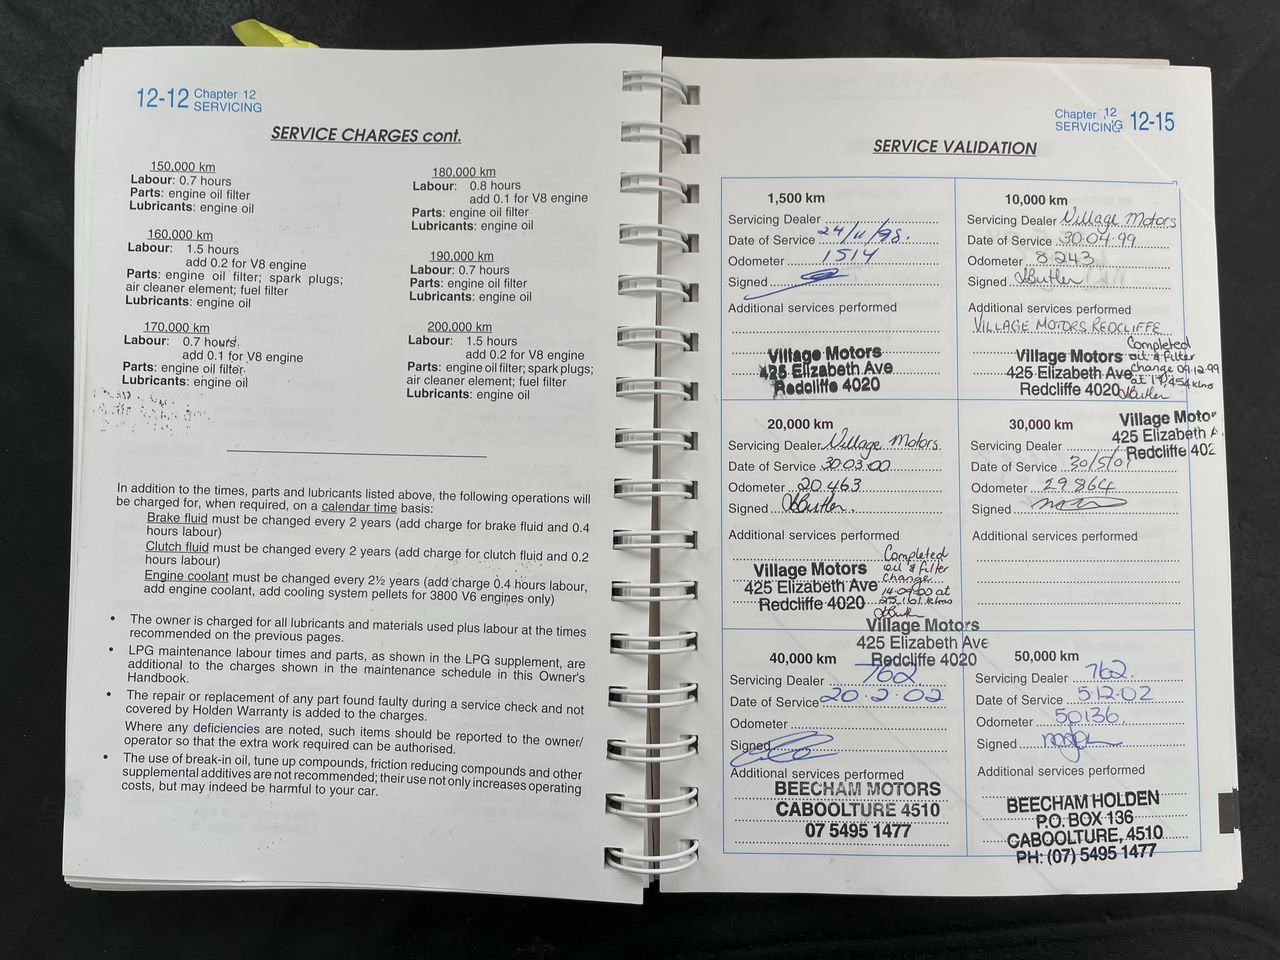 12-12 Chapter 12
SERVICING
SERVICE CHARGES cont.
150,000 km
Labour: 0.7 hours
Parts: engine oil filter
Lubricants: engine oil
160,000 km
Labour: 1.5 hours
add 0.2 for V8 engine
Parts: engine oil filter; spark plugs;
air cleaner element; fuel filter
Lubricants: engine oil
170,000 km
Labour: 0.7 hours
add 0.1 for V8 engine
Parts: engine oil filter
Lubricants: engine oil
180,000 km
Labour: 0.8 hours
add 0.1 for V8 engine
Parts: engine oil filter
Lubricants: engine oil
190,000 km
Labour: 0.7 hours
Parts: engine oil filter
Lubricants: engine oil
200,000 km
Labour: 1.5 hours
add 0.2 for V8 engine
Parts: engine oil filter; spark plugs;
air cleaner element; fuel filter
Lubricants: engine oil
In addition to the times, parts and lubricants listed above, the following operations will
be charged for, when required, on a calendar time basis:
Brake fluid must be changed every 2 years (add charge for brake fluid and 0.4
hours labour)
Clutch fluid must be changed every 2 years (add charge for clutch fluid and 0.2
hours labour)
Engine coolant must be changed every 2½ years (add charge 0.4 hours labour,
add engine coolant, add cooling system pellets for 3800 V6 engines only)
• The owner is charged for all lubricants and materials used plus labour at the times
recommended on the previous pages.
• LPG maintenance labour times and parts, as shown in the LPG supplement, are
additional to the charges shown in the maintenance schedule in this Owner's
Handbook.
• The repair or replacement of any part found faulty during a service check and not
covered by Holden Warranty is added to the charges.
Where any deficiencies are noted, such items should be reported to the owner/
operator so that the extra work required can be authorised.
• The use of break-in oil, tune up compounds, friction reducing compounds and other
supplemental additives are not recommended; their use not only increases operating
costs, but may indeed be harmful to your car.
Chapter 12
SERVICING 12-15
SERVICE VALIDATION
1,500 km
Servicing Dealer
Date of Service 24/11/98.
Odometer 1514
Signed
Additional services performed
Village Motors
425 Elizabeth Ave
Redcliffe 4020
10,000 km
Servicing Dealer Village Motors
Date of Service 30.04.99
Odometer 8243
Signed JButler
Additional services performed
VILLAGE MOTORS REDCLIFFE
Village Motors
425 Elizabeth Ave
Redcliffe 4020
Completed
oil & filter
change 09.12.99
at klms
JButler
20,000 km
Servicing Dealer Village Motors.
Date of Service 30.03.00
Odometer 20,463
Signed JButler.
Additional services performed
Village Motors
425 Elizabeth Ave
Redcliffe 4020
Completed
oil & filter
change
at
25,161 klms
30,000 km
Village Moto
425 Elizabeth A
Redcliffe 402
Servicing Dealer
Date of Service 30/5/01
Odometer 29864
Signed
Additional services performed
Village Motors
425 Elizabeth Ave
Redcliffe 4020
40,000 km
Servicing Dealer 762
Date of Service 20.2.02
Odometer
Signed
Additional services performed
BEECHAM MOTORS
CABOOLTURE 4510
07 5495 1477
50,000 km
Servicing Dealer 762.
Date of Service 5.12.02
Odometer 50136.
Signed
Additional services performed
BEECHAM HOLDEN
P.O. BOX 136
CABOOLTURE, 4510
PH: (07) 5495 1477